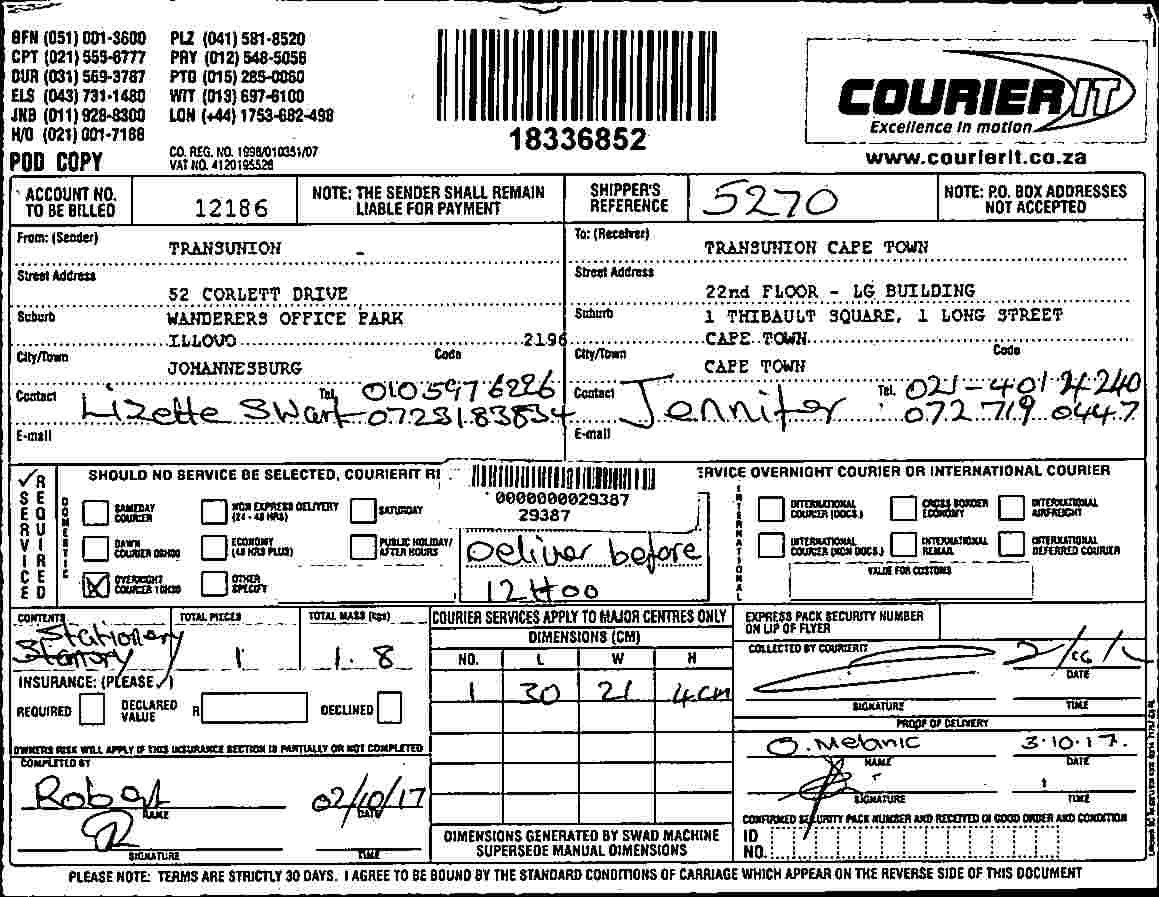 BFN (051) 001-3600 PLZ (041) 581-8520
CPT (021) 555-6777 PRY (012) 548-5056
DUR (031) 569-3787 PTG (015) 285-0060
ELS (043) 731-1480 WIT (013) 697-6100
JNB (011) 928-8300 LON (+44) 1753-682-498
H/O (021) 001-7188
POD COPY
CO. REG. NO. 1998/010351/07
VAT NO. 4120195528
18336852
COURIER IT
Excellence in motion
www.courierit.co.za
ACCOUNT NO. TO BE BILLED 12186
NOTE: THE SENDER SHALL REMAIN LIABLE FOR PAYMENT
SHIPPER'S REFERENCE 5270
NOTE: P.O. BOX ADDRESSES NOT ACCEPTED
From: (Sender) TRANSUNION
Street Address
52 CORLETT DRIVE
Suburb WANDERERS OFFICE PARK
ILLOVO 2196
City/Town JOHANNESBURG Code
Contact Lizette Swart Tel. 010 597 6226
0723183834
E-mail
To: (Receiver) TRANSUNION CAPE TOWN
Street Address
22nd FLOOR - LG BUILDING
Suburb 1 THIBAULT SQUARE, 1 LONG STREET
CAPE TOWN
City/Town CAPE TOWN Code
Contact Jennifer Tel. 021-401 4240
072 719 0447
E-mail
SERVICE REQUIRED
SHOULD NO SERVICE BE SELECTED, COURIERIT
SERVICE OVERNIGHT COURIER OR INTERNATIONAL COURIER
0000000029387
29387
Deliver before
12H00
DOMESTIC
SAMEDAY COURIER
NON EXPRESS DELIVERY (24 - 48 HRS)
SATURDAY
DAWN COURIER 08H00
ECONOMY (48 HRS PLUS)
PUBLIC HOLIDAY/ AFTER HOURS
OVERNIGHT COURIER 10H30
OTHER SPECIFY
INTERNATIONAL
INTERNATIONAL COURIER (DOCS.)
CROSS BORDER ECONOMY
INTERNATIONAL AIRFREIGHT
INTERNATIONAL COURIER (NON DOCS.)
INTERNATIONAL REMAIL
INTERNATIONAL DEFERRED COURIER
VALUE FOR CUSTOMS
CONTENTS Stationery
TOTAL PIECES 1
TOTAL MASS (kgs) 1.8
INSURANCE: (PLEASE ✓)
REQUIRED DECLARED VALUE R DECLINED
OWNERS RISK WILL APPLY IF THIS INSURANCE SECTION IS PARTIALLY OR NOT COMPLETED
COMPLETED BY
Robert 02/10/17
NAME DATE
SIGNATURE TIME
COURIER SERVICES APPLY TO MAJOR CENTRES ONLY
DIMENSIONS (CM)
NO. L W H
1 30 21 4cm
DIMENSIONS GENERATED BY SWAD MACHINE SUPERSEDE MANUAL DIMENSIONS
EXPRESS PACK SECURITY NUMBER ON LIP OF FLYER
COLLECTED BY COURIERIT
DATE
SIGNATURE TIME
PROOF OF DELIVERY
O. Melanie 3.10.17.
NAME DATE
SIGNATURE TIME
CONFIRMED SECURITY PACK NUMBER AND RECEIVED IN GOOD ORDER AND CONDITION
ID NO.
PLEASE NOTE: TERMS ARE STRICTLY 30 DAYS. I AGREE TO BE BOUND BY THE STANDARD CONDITIONS OF CARRIAGE WHICH APPEAR ON THE REVERSE SIDE OF THIS DOCUMENT